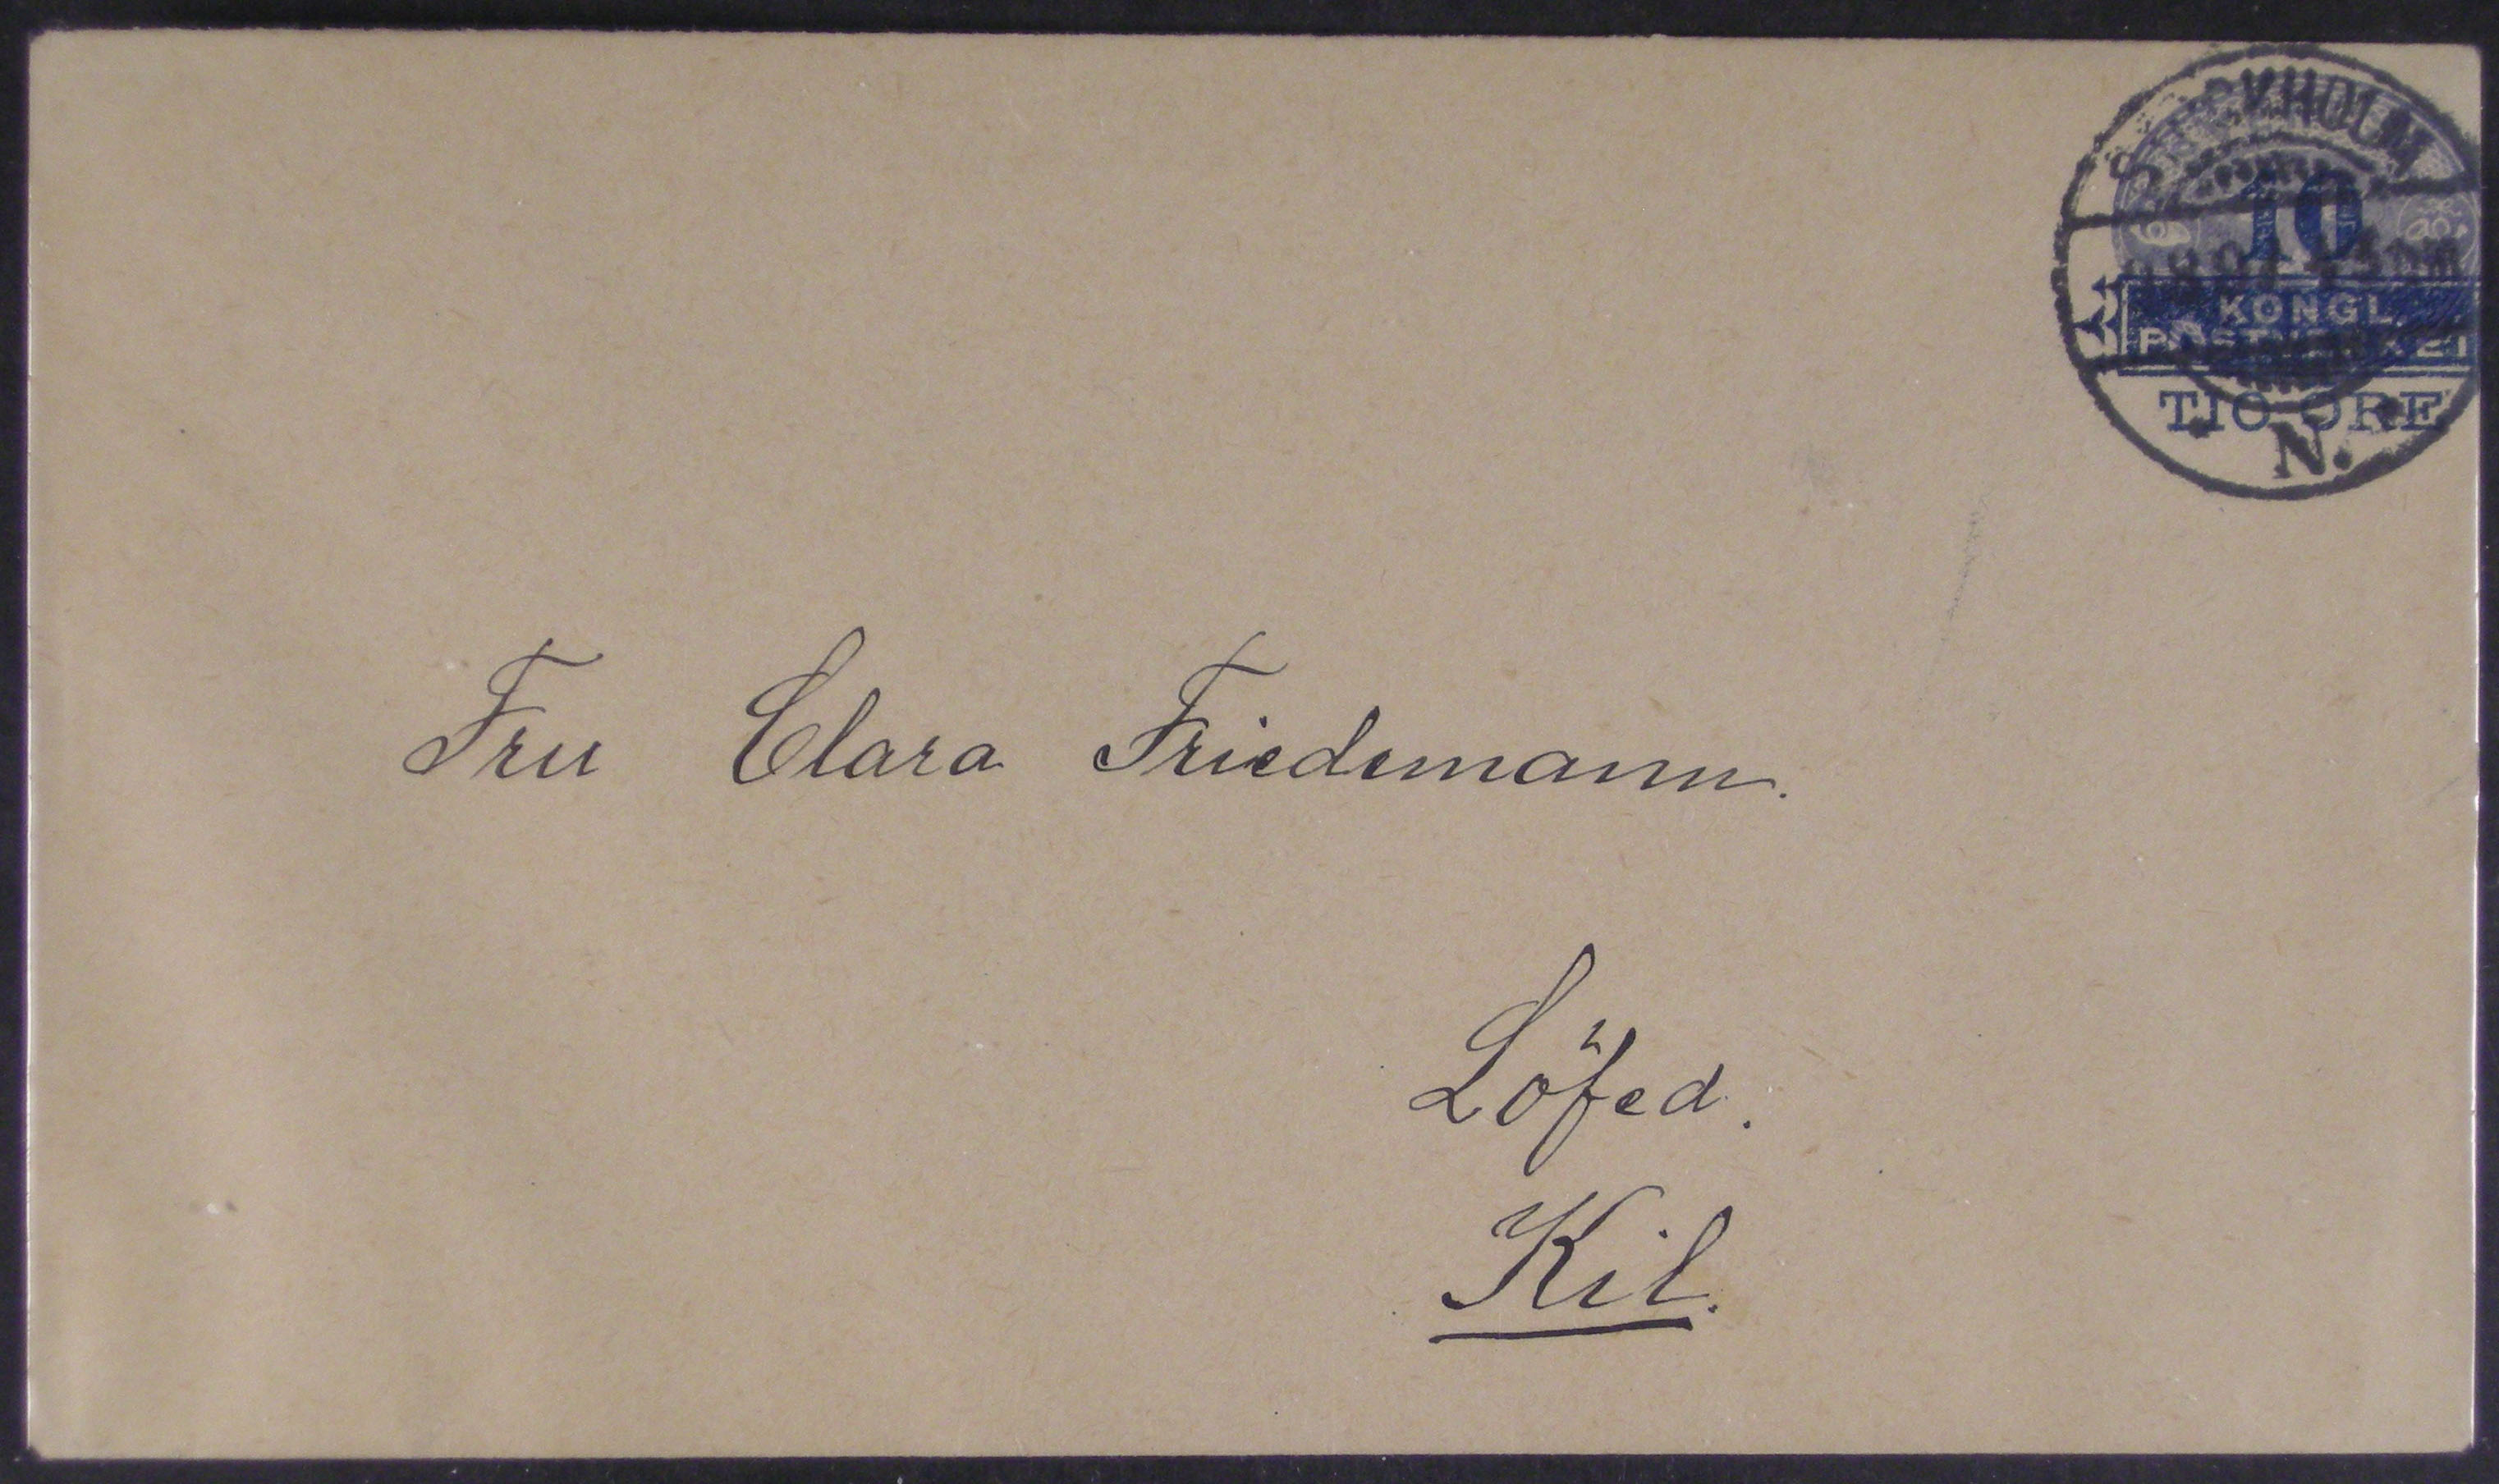 STOCKHOLM
10
KONGL.
POSTVERKET
TIO ÖRE
N.
Fru Clara Friedemann.
Löfed.
Kil.